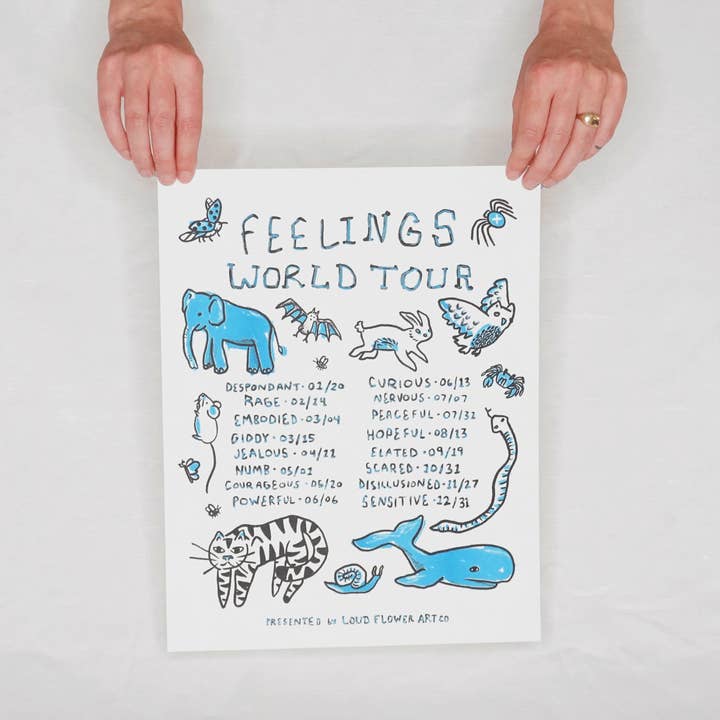 FEELINGS
WORLD TOUR
DESPONDANT · 01/20
RAGE · 02/14
EMBODIED · 03/04
GIDDY · 03/15
JEALOUS · 04/11
NUMB · 05/01
COURAGEOUS · 05/20
POWERFUL · 06/06
CURIOUS · 06/13
NERVOUS · 07/07
PEACEFUL · 07/31
HOPEFUL · 08/13
ELATED · 09/19
SCARED · 10/31
DISILLUSIONED · 11/27
SENSITIVE · 12/31
PRESENTED by LOUD FLOWER ART CO